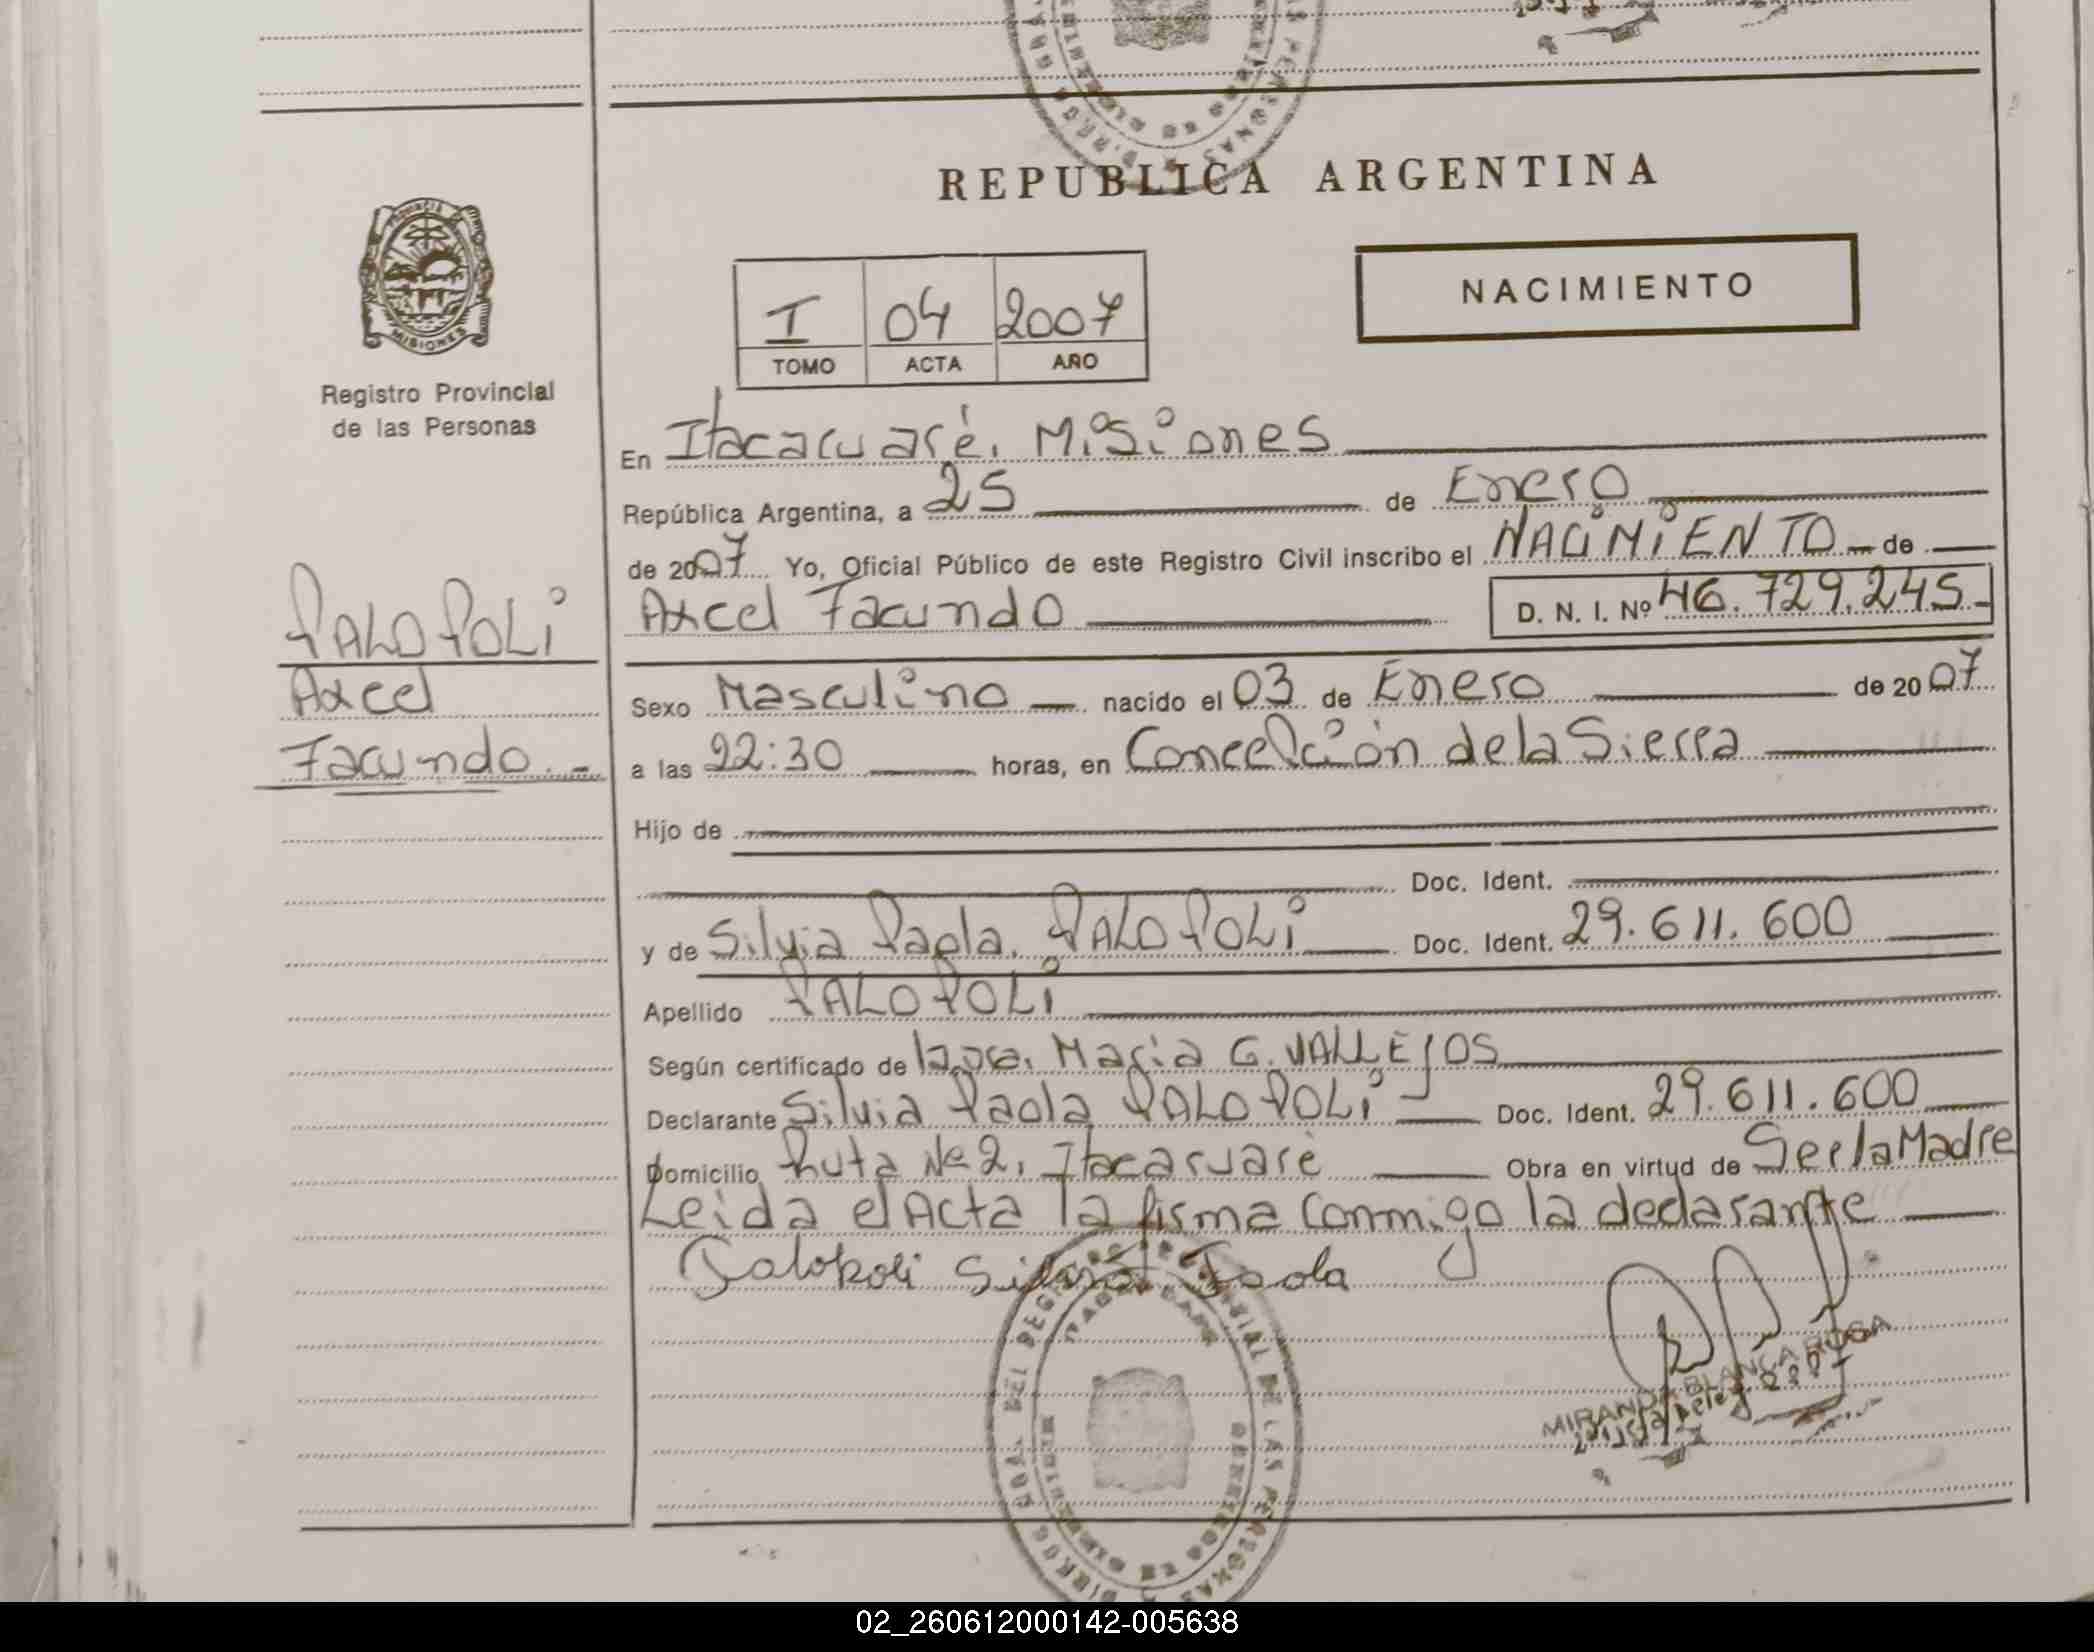 REPUBLICA ARGENTINA
NACIMIENTO
PROVINCIA
MISIONES
Registro Provincial
de las Personas
I 04 2007
TOMO ACTA AÑO
En Itacaruaré. Misiones
República Argentina, a 25 de Enero
de 2007 Yo, Oficial Público de este Registro Civil inscribo el NACiMiENTO de
Axcel Facundo D. N. I. Nº 46.729.245.-
PALOPOLi
Axcel
Facundo.-
Sexo Masculino nacido el 03 de Enero de 2007
a las 22:30 horas, en Concepción de la Sierra
Hijo de
Doc. Ident.
y de Silvia Paola. PALOPOLi Doc. Ident. 29.611.600
Apellido PALOPOLi
Según certificado de Maria G. VALLEJOS
Declarante Silvia Paola PALOPOLi Doc. Ident. 29.611.600
Domicilio Ruta Nº 2, Itacaruaré Obra en virtud de Ser la Madre
Leida el Acta la firma conmigo la declarante
Palopoli Silvia Paola
MIRANDA BLANCA ROSA
02_260612000142-005638